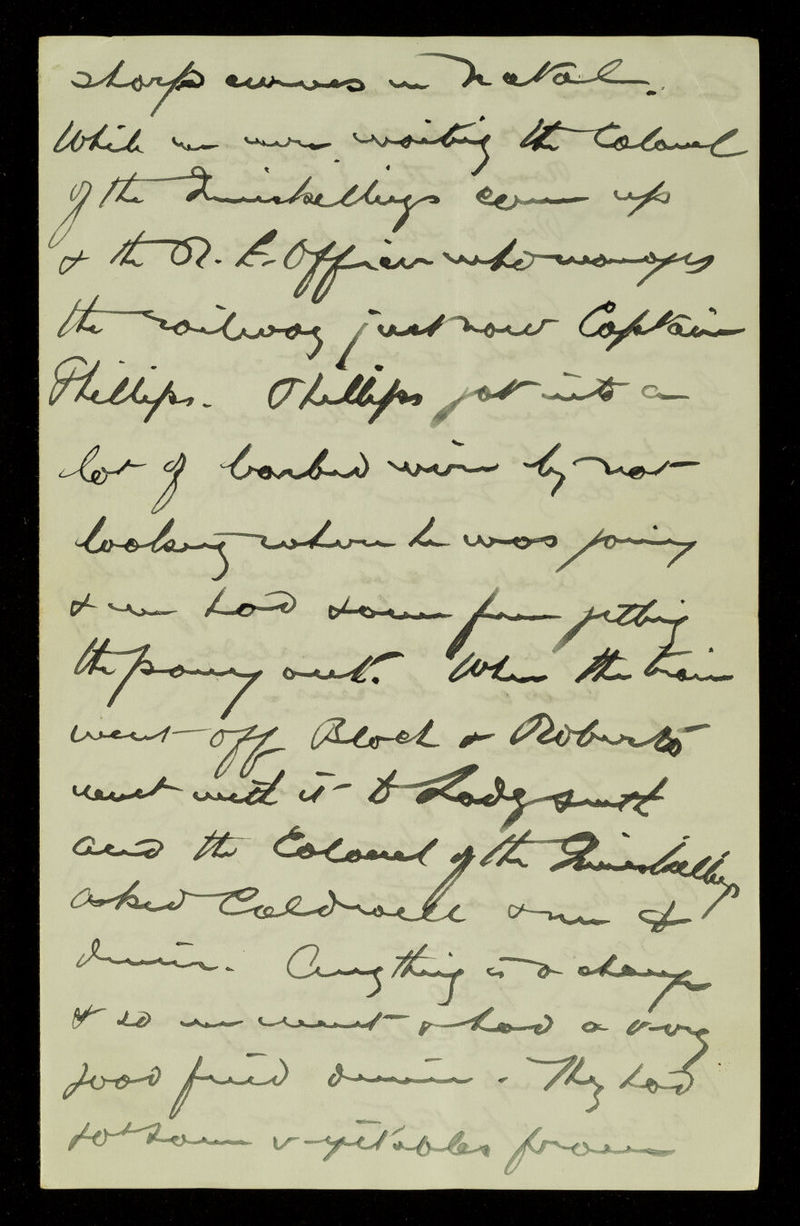 sharp curves in Natal.
While we were waiting the Colonel
of the Inniskellings came up
& the R. E. Officer who manages
the railway just now Captain
Phillips. Phillips got into a
lot of barbed wire by not
looking where he was going
& we had some fun getting
the pony out. When the train
went off Bloch & Roberts
went with it to Ladysmith
and the Colonel of the Inniskellings
asked Caldwell & me to
dinner. Anything is a change
& so we went & had a very
good field dinner. They had
got some vegetables from